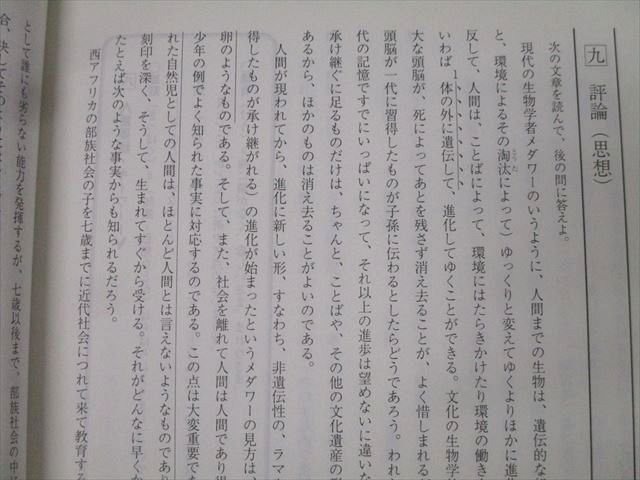 九 評論（思想）
次の文章を読んで、後の問に答えよ。
現代の生物学者メダワーのいうように、人間までの生物は、遺伝的な
と、環境によるその淘汰によって）ゆっくりと変えてゆくよりほかに進
とうた
反して、人間は、ことばによって、環境にはたらきかけたり環境の働き
いわば1体の外に遺伝して、進化してゆくことができる。文化の生物学
大な頭脳が、死によってあとを残さず消え去ることが、よく惜しまれる
頭脳が一代に習得したものが子孫に伝わるとしたらどうであろう。われ
代の記憶ですでにいっぱいになって、それ以上の進歩は望めないに違いな
承け継ぐに足るものだけは、ちゃんと、ことばや、その他の文化遺産の
あるから、ほかのものは消え去ることがよいのである。
人間が現われてから、進化に新しい形、すなわち、非遺伝性の、ラマ
得したものが承け継がれる）の進化が始まったというメダワーの見方は、
卵のようなものである。そして、また、社会を離れて人間は人間であり得
少年の例でよく知られた事実に対応するのである。この点は大変重要で
れた自然児としての人間は、ほとんど人間とは言えないようなものであり
刻印を深く、そうして、生まれてすぐから受ける。それがどんなに早くか
たとえば次のような事実からも知られるだろう。
西アフリカの部族社会の子を七歳までに近代社会につれて来て教育する
として誰にも劣らない能力を発揮するが、七歳以後まで、部族社会の中